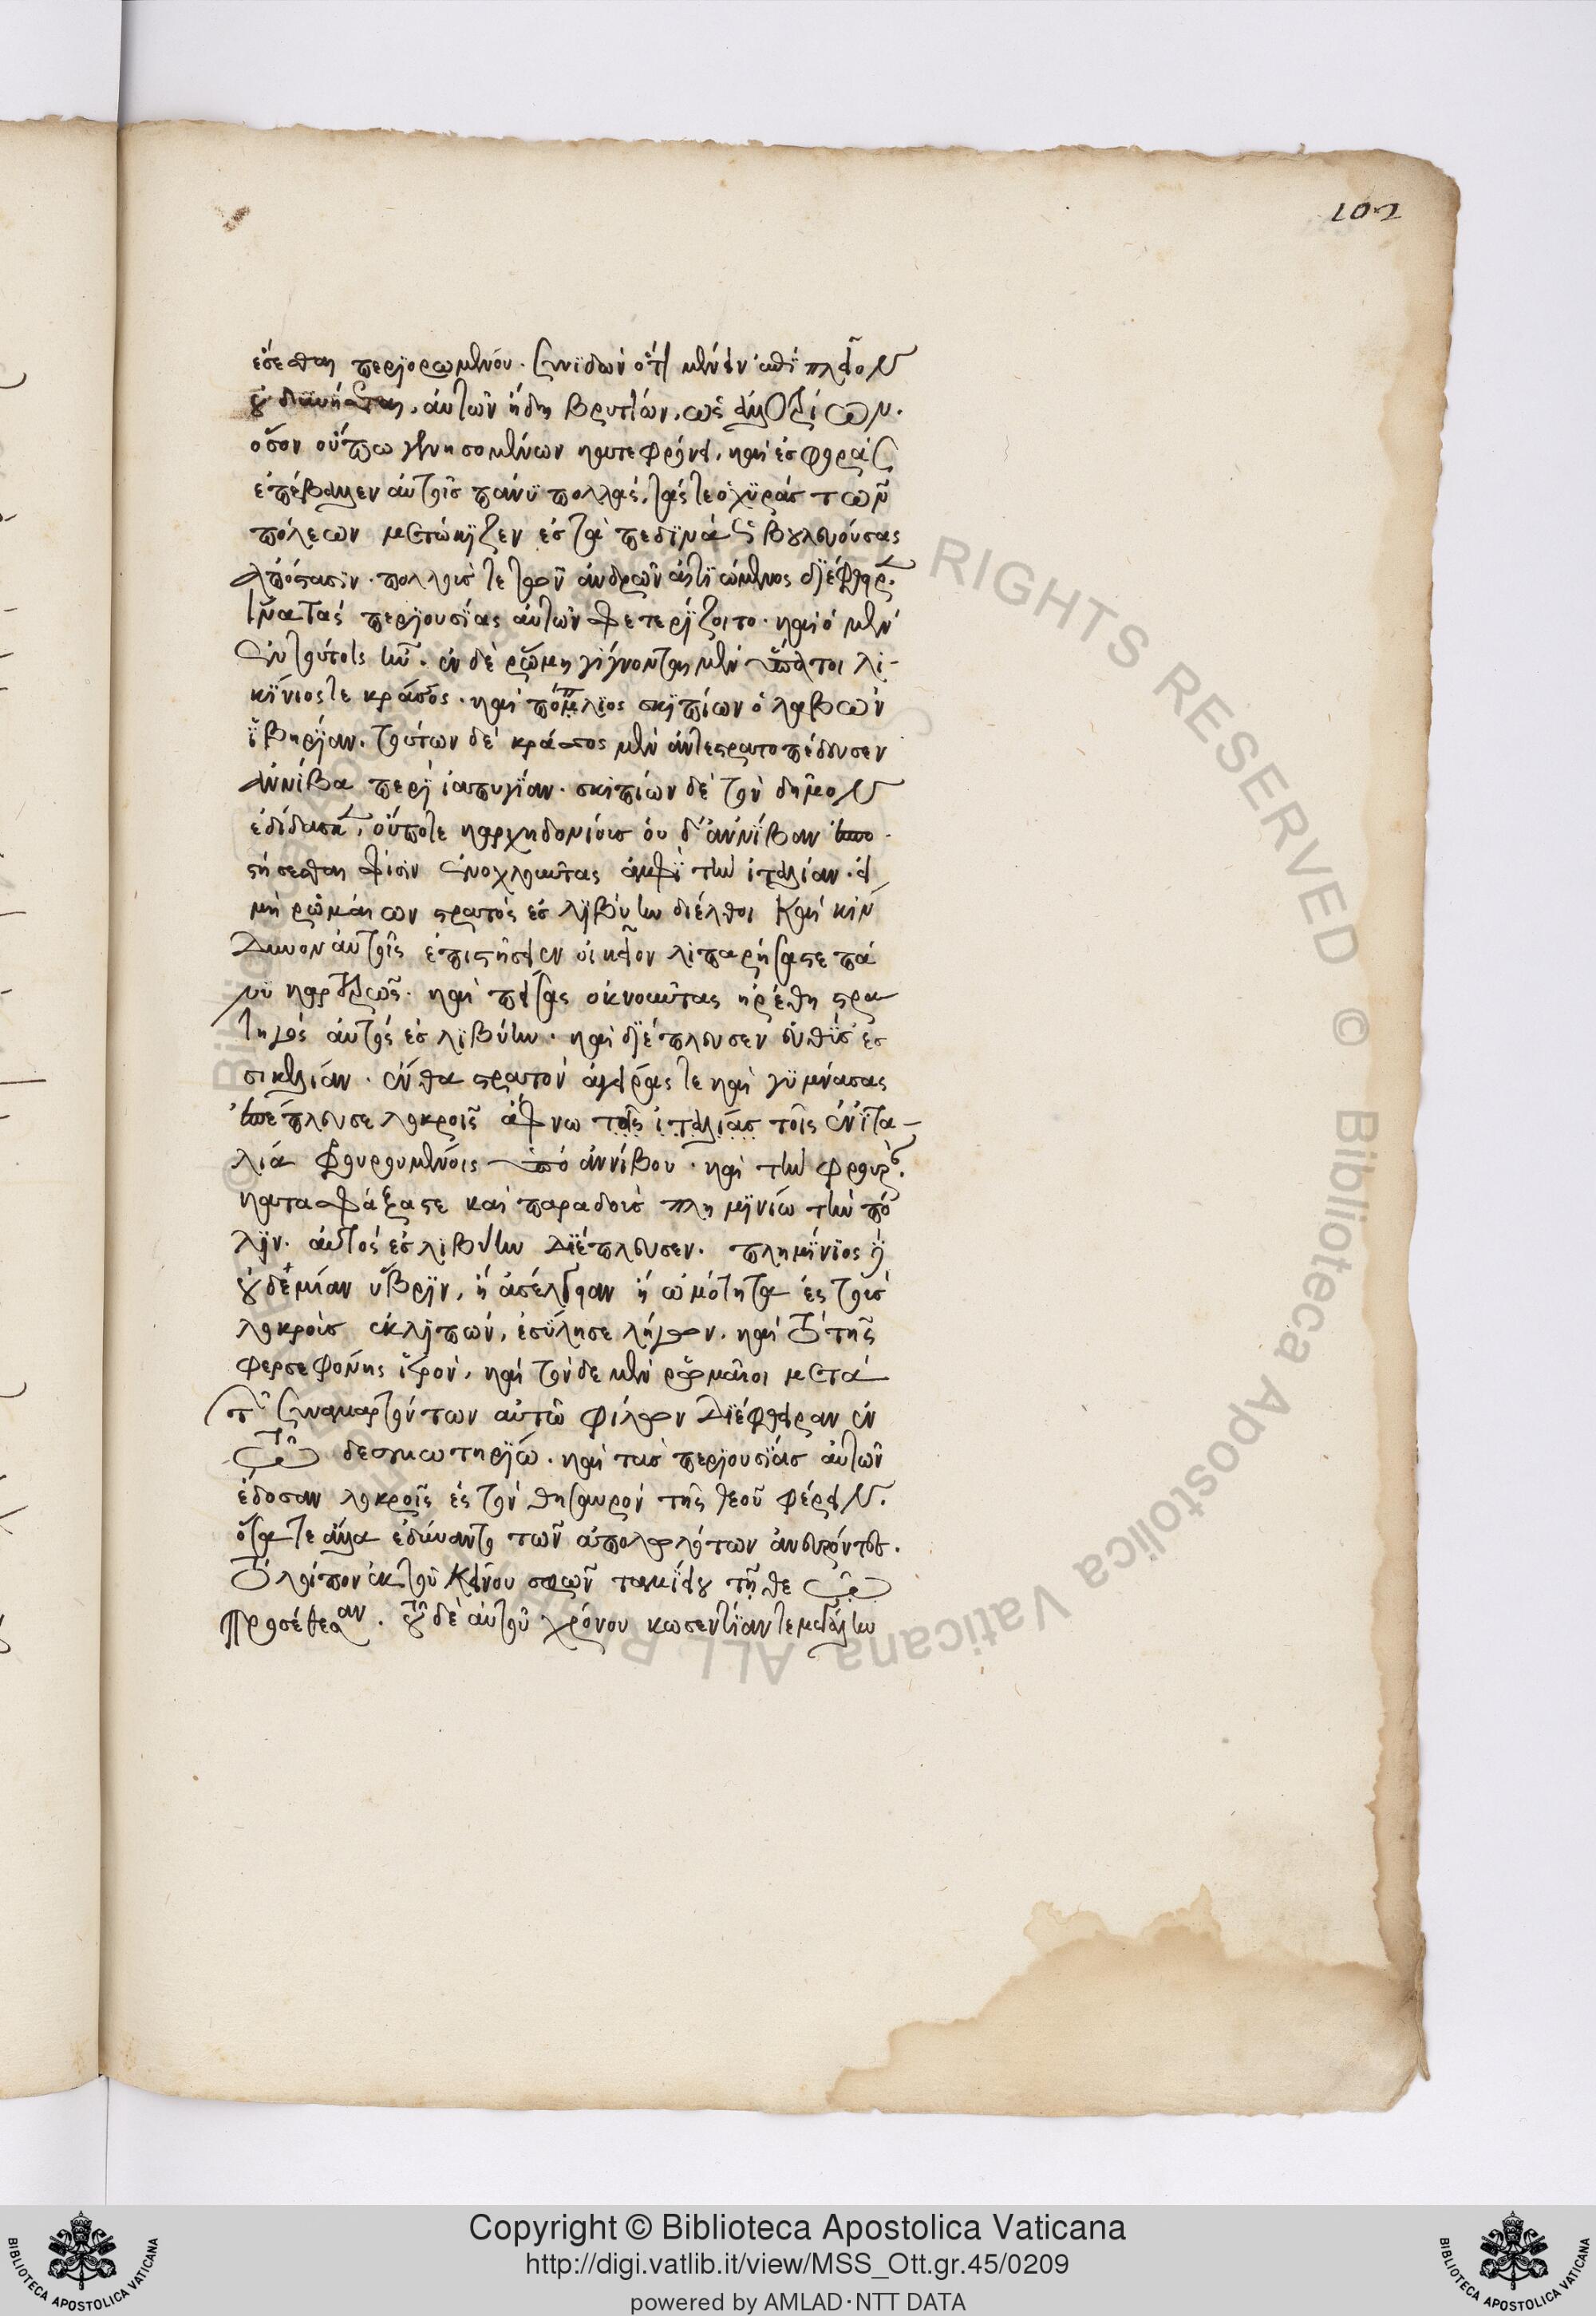 102
ἔσεσθαι περιορώμενον. συνιδὼν ὅτι μηδὲν ἐπὶ πλεῖον
οὐ αὐτῶν ἤδη βρυττίων, ὡς ἀλλοτρίων
ὅσον οὔπω γενησομένων κατεφρόνει, καὶ ἐσφορὰς
ἐπέβαλλεν αὐτοῖς πάνυ πολλάς, τάς τε ὀχυρὰς τῶν
πόλεων μετῴκιζεν ἐς τὰ πεδινὰ ὡς βουλευούσας
ἀπόστασιν. πολλούς τε τῶν ἀνδρῶν αἰτιώμενος διέφθειρεν
ἵνα τὰς περιουσίας αὐτῶν σφετερίζοιτο. καὶ ὁ μὲν
ἐν τούτοις ἦν. ἐν δὲ ῥώμῃ γίγνονται μὲν ὕπατοι λι-
κίνιός τε κράσσος. καὶ πόπλιος σκιπίων ὁ λαβὼν
ἰβηρίαν. τούτων δὲ κράσσος μὲν ἀντεστρατοπέδευσεν
ἀννίβα περὶ ἰαπυγίαν. σκιπίων δὲ τὸν δῆμον
ἐδίδασκεν, οὔποτε καρχηδονίους οὐδ' ἀννίβαν ἀπο
στήσεσθαι σφίσιν ἐνοχλοῦντας ἀμφὶ τὴν ἰταλίαν. εἰ
μὴ ῥωμαίων στρατὸς ἐς λιβύην διέλθοι καὶ κίν
δυνον αὐτοῖς ἐπιστήσειεν οἰκεῖον λιπαρήσας τε πά
νυ καρτερῶς. καὶ πείσας ὀκνοῦντας ᾑρέθη στρα
τηγὸς αὐτὸς ἐς λιβύην. καὶ διέπλευσεν εὐθὺς ἐς
σικελίαν. ἔνθα στρατὸν ἀγείρας τε καὶ γυμνάσας
ἐπέπλευσε λοκροῖς ἄφνω τοῖς ἰταλίας τοῖς ἐν ἰτα-
λία φρουρουμένοις ὑπὸ ἀννίβου. καὶ τὴν φρουρὰν
κατασφάξας τε καὶ παραδοὺς πλημινίω τὴν πό
λιν. αὐτὸς ἐς λιβύην διέπλευσεν. πλημίνιος δὲ
οὐδεμίαν ὕβριν, ἢ ἀσέλγειαν ἢ ὠμότητα ἐς τοὺς
λοκροὺς ἐκλιπών, ἐσύλησε λήγων. καὶ τὸ τῆς
φερσεφόνης ἱερόν, καὶ τόνδε μὲν ῥωμαῖοι μετὰ
τῶν συναμαρτόντων αὐτῷ φίλων διέφθειραν ἐν
τῷ δεσμωτηρίῳ. καὶ τὰς περιουσίας αὐτῶν
ἔδοσαν λοκροῖς ἐς τὸν θησαυρὸν τῆς θεοῦ φέρειν.
ὅσα τε ἄλλα ἐδύναντο τῶν ἀπολωλότων ἀνευρόντες.
τὸ λοῖπον ἐκ τοῦ κοινοῦ σφῶν ταμιείου τῇ θεῷ
προσέθεσαν. τοῦ δὲ αὐτοῦ χρόνου κωσεντίαν τε μεγάλην
© Biblioteca Apostolica Vaticana ALL RIGHTS RESERVED © Biblioteca Apostolica Vaticana ALL RIGHTS RESERVED
Copyright © Biblioteca Apostolica Vaticana
http://digi.vatlib.it/view/MSS_Ott.gr.45/0209
powered by AMLAD·NTT DATA
BIBLIOTECA APOSTOLICA VATICANA
BIBLIOTECA APOSTOLICA VATICANA